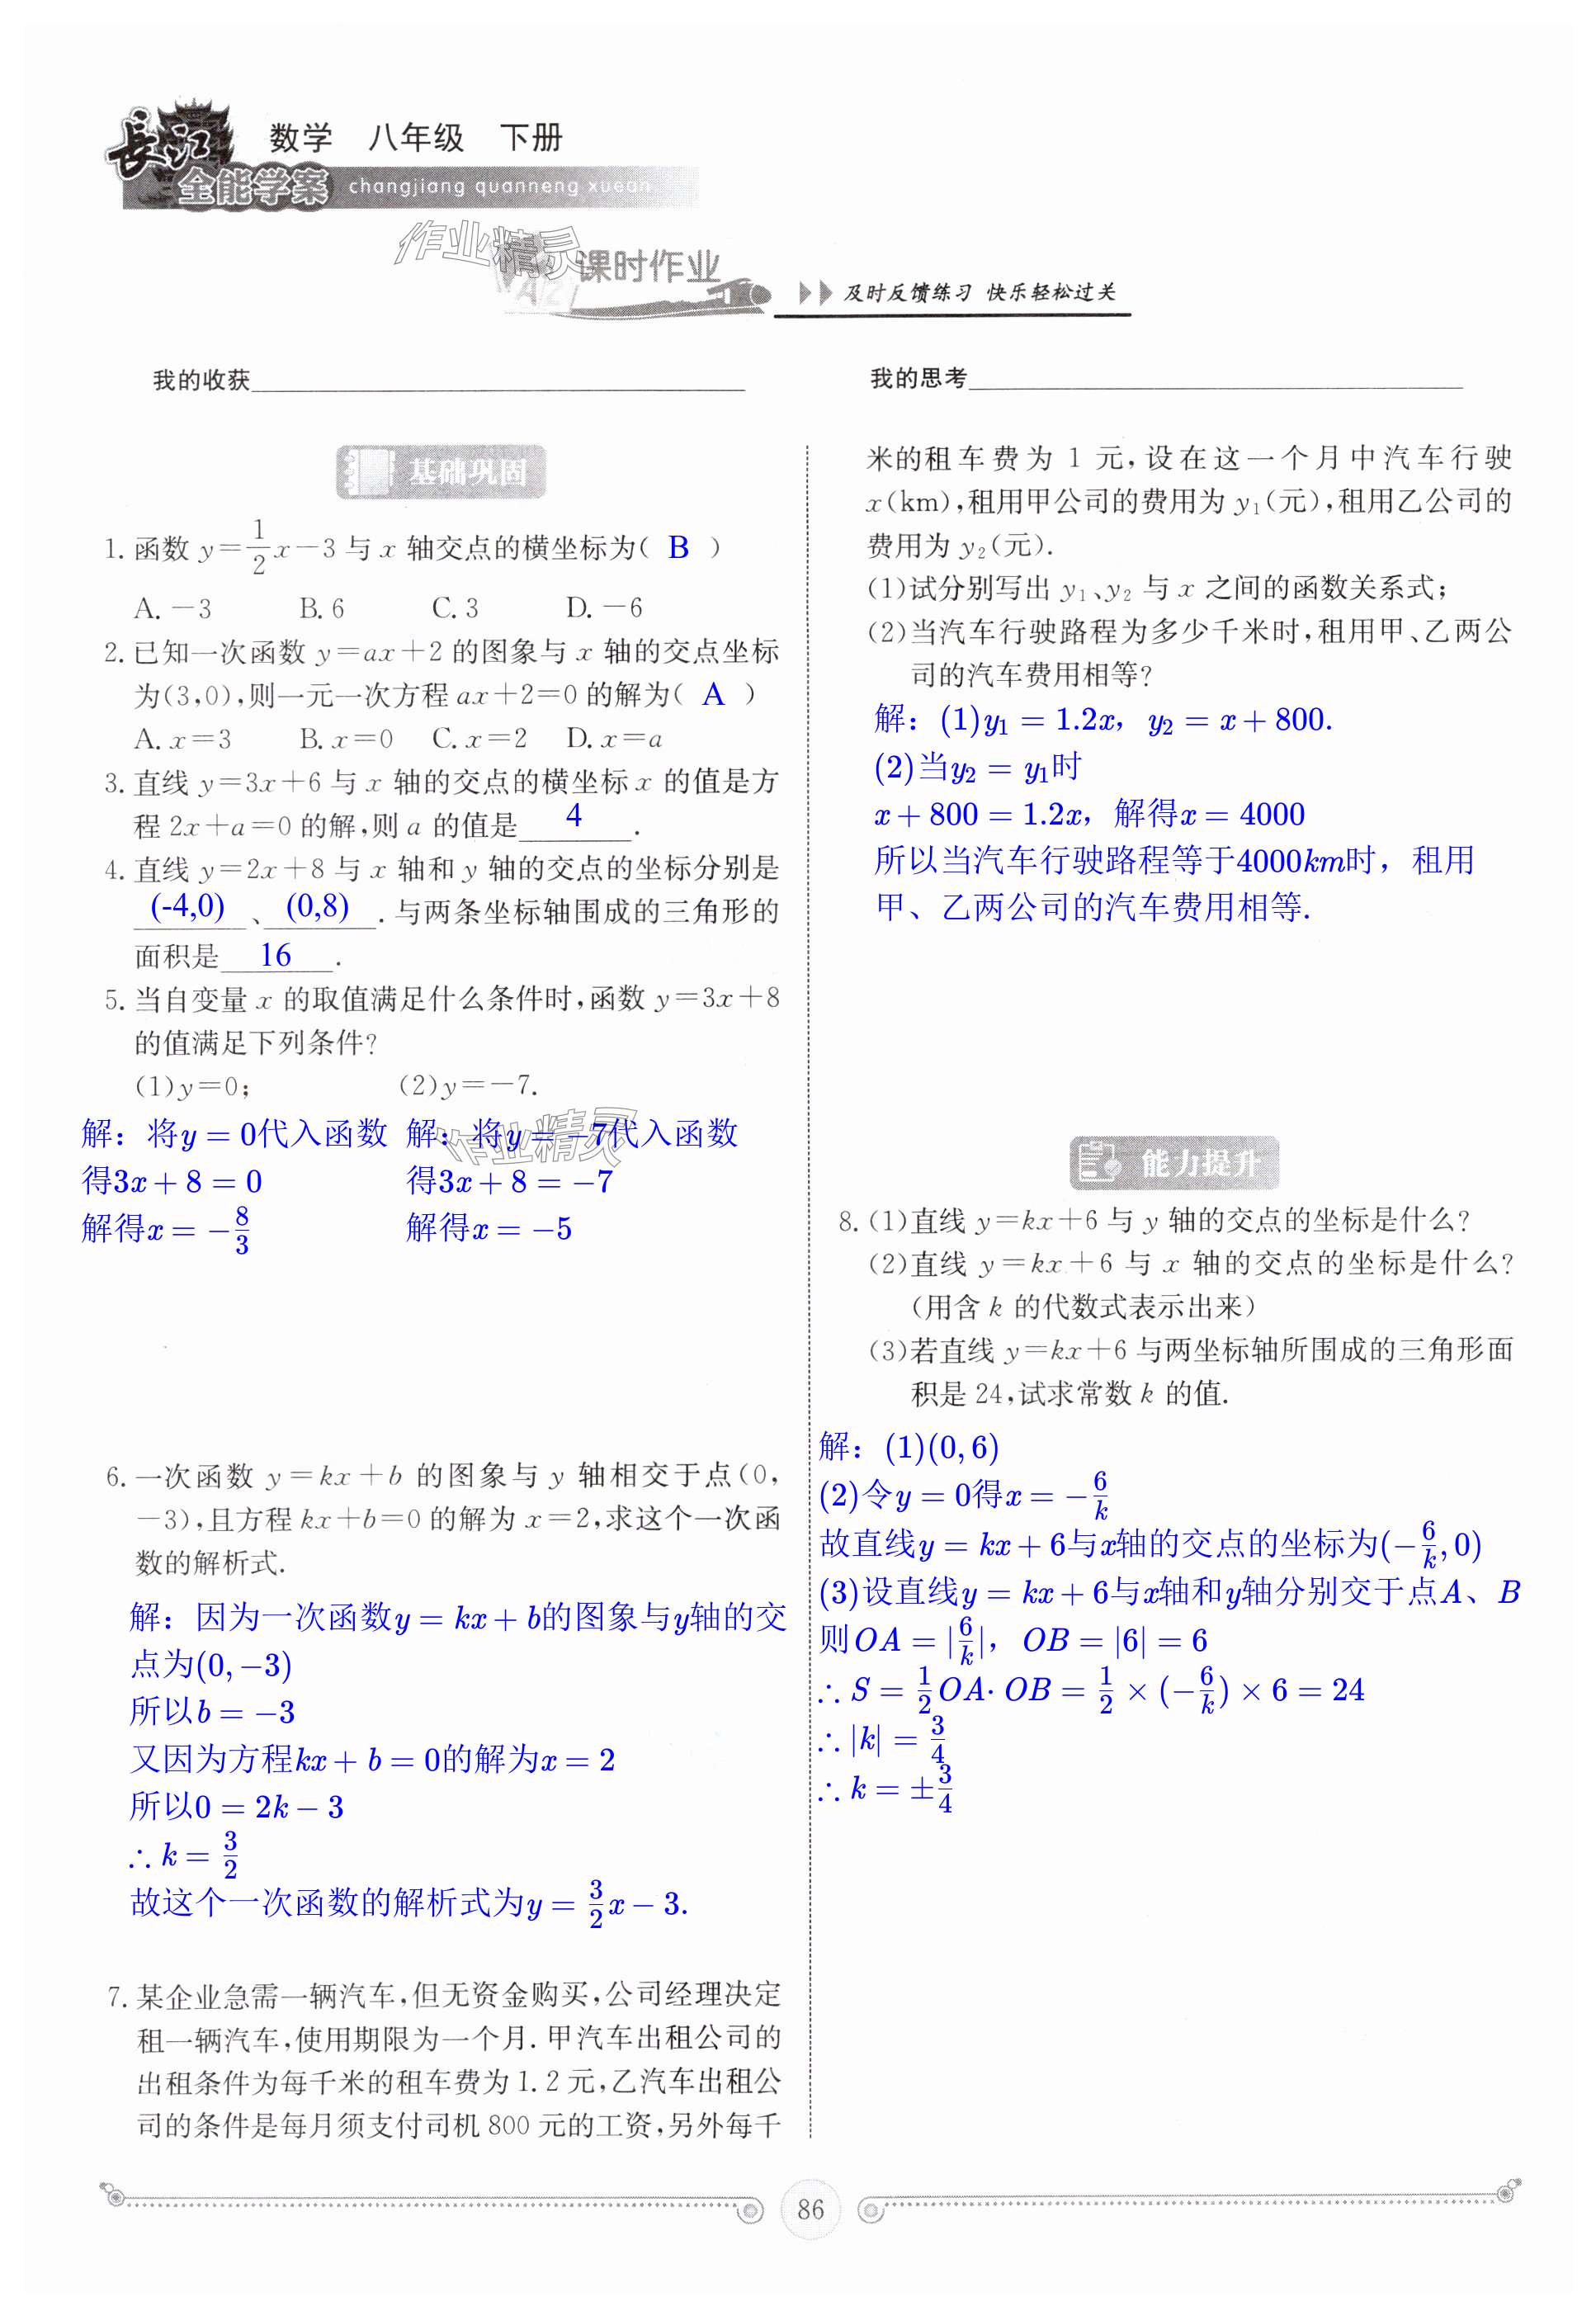 長江
数学 八年级 下册
全能学案 changjiang quanneng xuean
作业精灵
课时作业
及时反馈练习 快乐轻松过关
我的收获
我的思考
基础巩固
1. 函数 y=1/2x-3 与 x 轴交点的横坐标为( B )
A. -3 B. 6 C. 3 D. -6
2. 已知一次函数 y=ax+2 的图象与 x 轴的交点坐标
为(3,0),则一元一次方程 ax+2=0 的解为( A )
A. x=3 B. x=0 C. x=2 D. x=a
3. 直线 y=3x+6 与 x 轴的交点的横坐标 x 的值是方
程 2x+a=0 的解,则 a 的值是 4 .
4. 直线 y=2x+8 与 x 轴和 y 轴的交点的坐标分别是
(-4,0) 、 (0,8) . 与两条坐标轴围成的三角形的
面积是 16 .
5. 当自变量 x 的取值满足什么条件时,函数 y=3x+8
的值满足下列条件?
(1)y=0; (2)y=-7.
作业精灵
解：将y = 0代入函数 解：将y = -7代入函数
得3x + 8 = 0 得3x + 8 = -7
解得x = -8/3 解得x = -5
6. 一次函数 y=kx+b 的图象与 y 轴相交于点(0,
-3),且方程 kx+b=0 的解为 x=2,求这个一次函
数的解析式.
解：因为一次函数y = kx + b的图象与y轴的交
点为(0, -3)
所以b = -3
又因为方程kx + b = 0的解为x = 2
所以0 = 2k - 3
∴ k = 3/2
故这个一次函数的解析式为y = 3/2x - 3.
7. 某企业急需一辆汽车,但无资金购买,公司经理决定
租一辆汽车,使用期限为一个月. 甲汽车出租公司的
出租条件为每千米的租车费为 1.2 元,乙汽车出租公
司的条件是每月须支付司机 800 元的工资,另外每千
米的租车费为 1 元,设在这一个月中汽车行驶
x(km),租用甲公司的费用为 y₁(元),租用乙公司的
费用为 y₂(元).
(1)试分别写出 y₁、y₂ 与 x 之间的函数关系式;
(2)当汽车行驶路程为多少千米时,租用甲、乙两公
司的汽车费用相等?
解：(1)y₁ = 1.2x, y₂ = x + 800.
(2)当y₂ = y₁时
x + 800 = 1.2x, 解得x = 4000
所以当汽车行驶路程等于4000km时，租用
甲、乙两公司的汽车费用相等.
能力提升
8. (1)直线 y=kx+6 与 y 轴的交点的坐标是什么?
(2)直线 y=kx+6 与 x 轴的交点的坐标是什么?
(用含 k 的代数式表示出来)
(3)若直线 y=kx+6 与两坐标轴所围成的三角形面
积是 24,试求常数 k 的值.
解：(1)(0, 6)
(2)令y = 0得x = -6/k
故直线y = kx + 6与x轴的交点的坐标为(-6/k, 0)
(3)设直线y = kx + 6与x轴和y轴分别交于点A、B
则OA = |6/k|, OB = |6| = 6
∴ S = 1/2OA· OB = 1/2 × (-6/k) × 6 = 24
∴ |k| = 3/4
∴ k = ±3/4
86